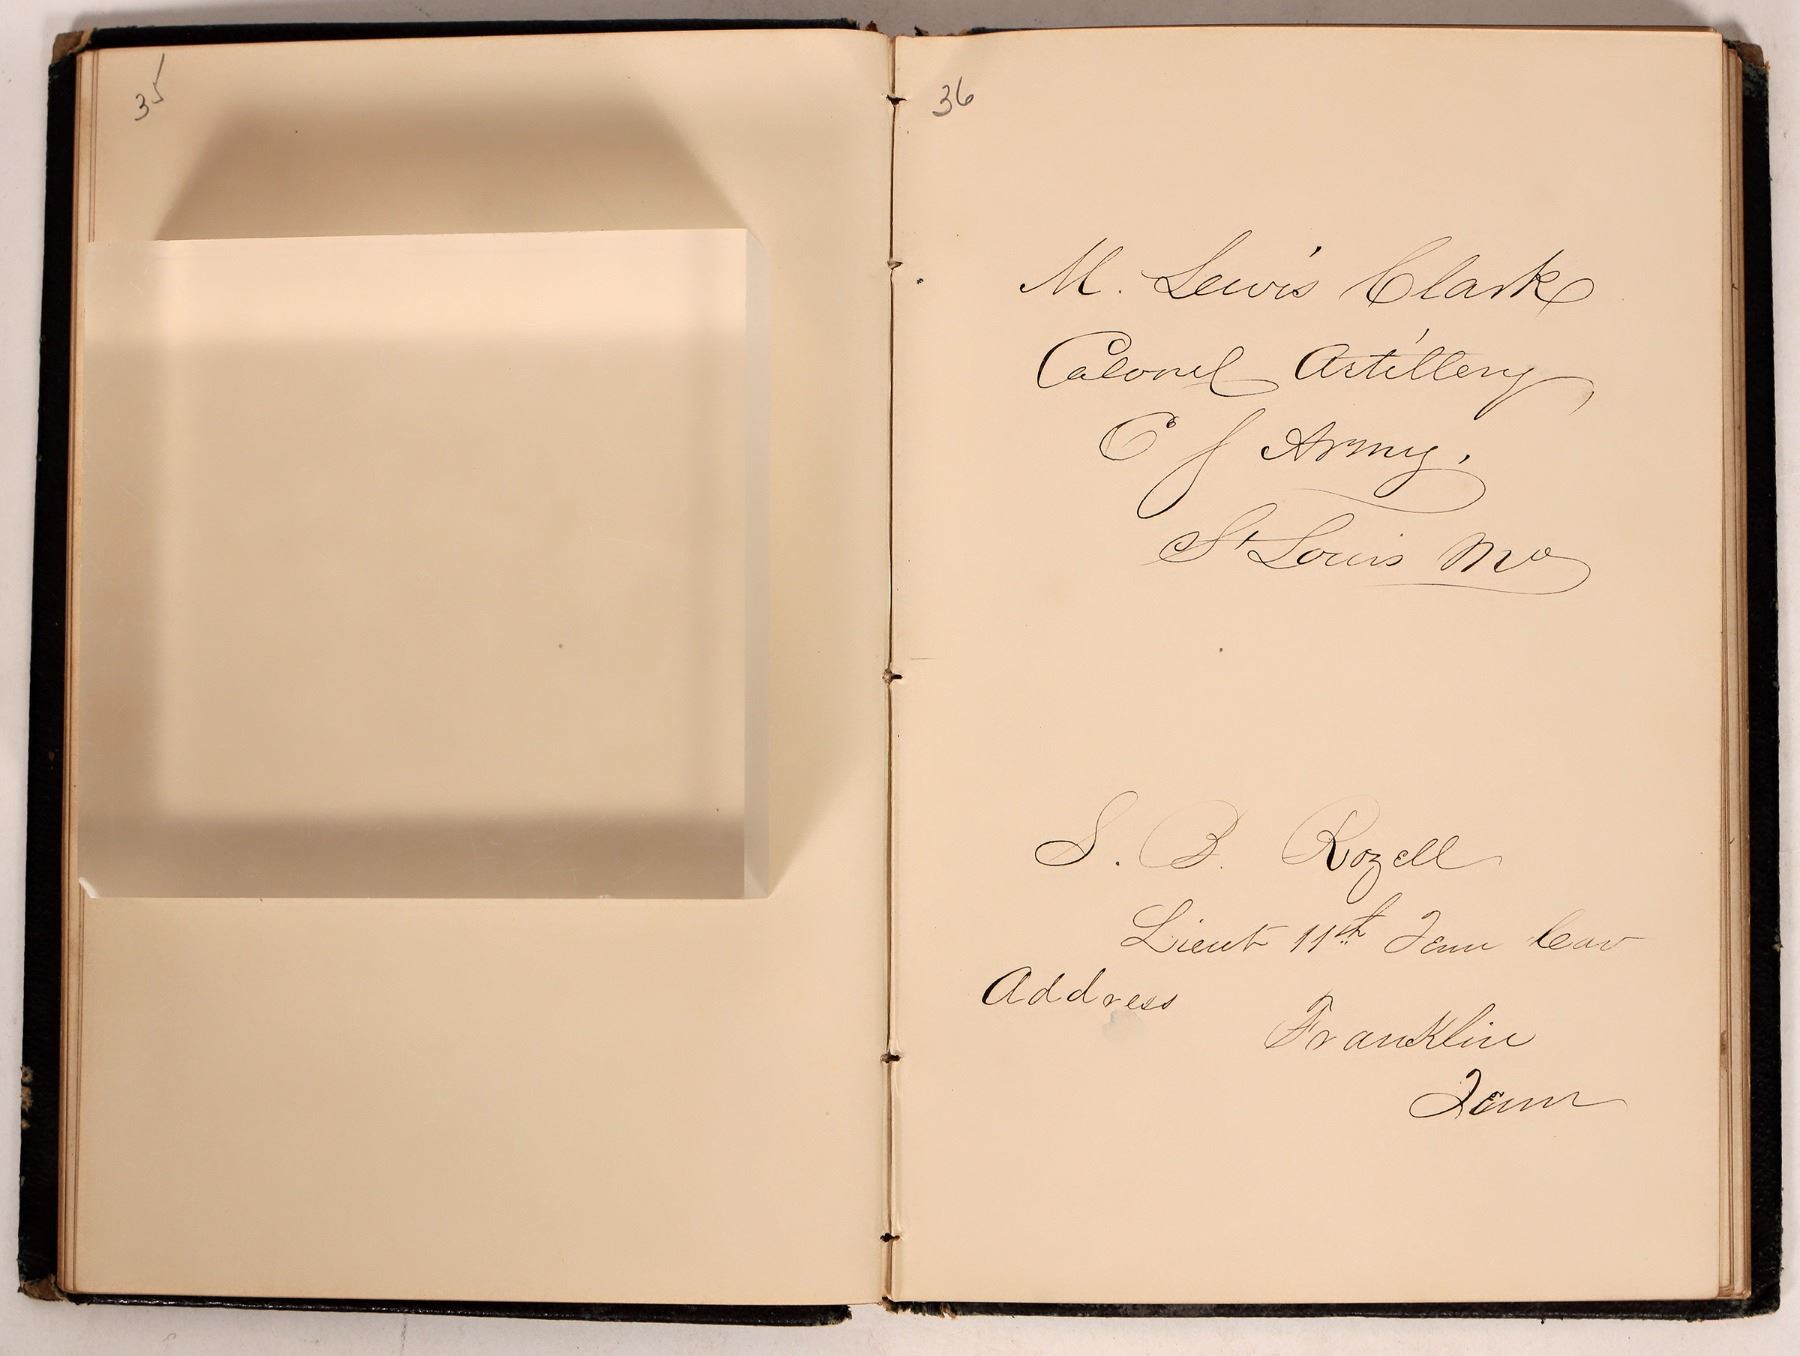 35
36
M. Lewis Clark
Colonel Artillery
C S Army.
St Louis Mo
S. B. Rozell
Lieut 11th Tenn Cav
Address
Franklin
Tenn